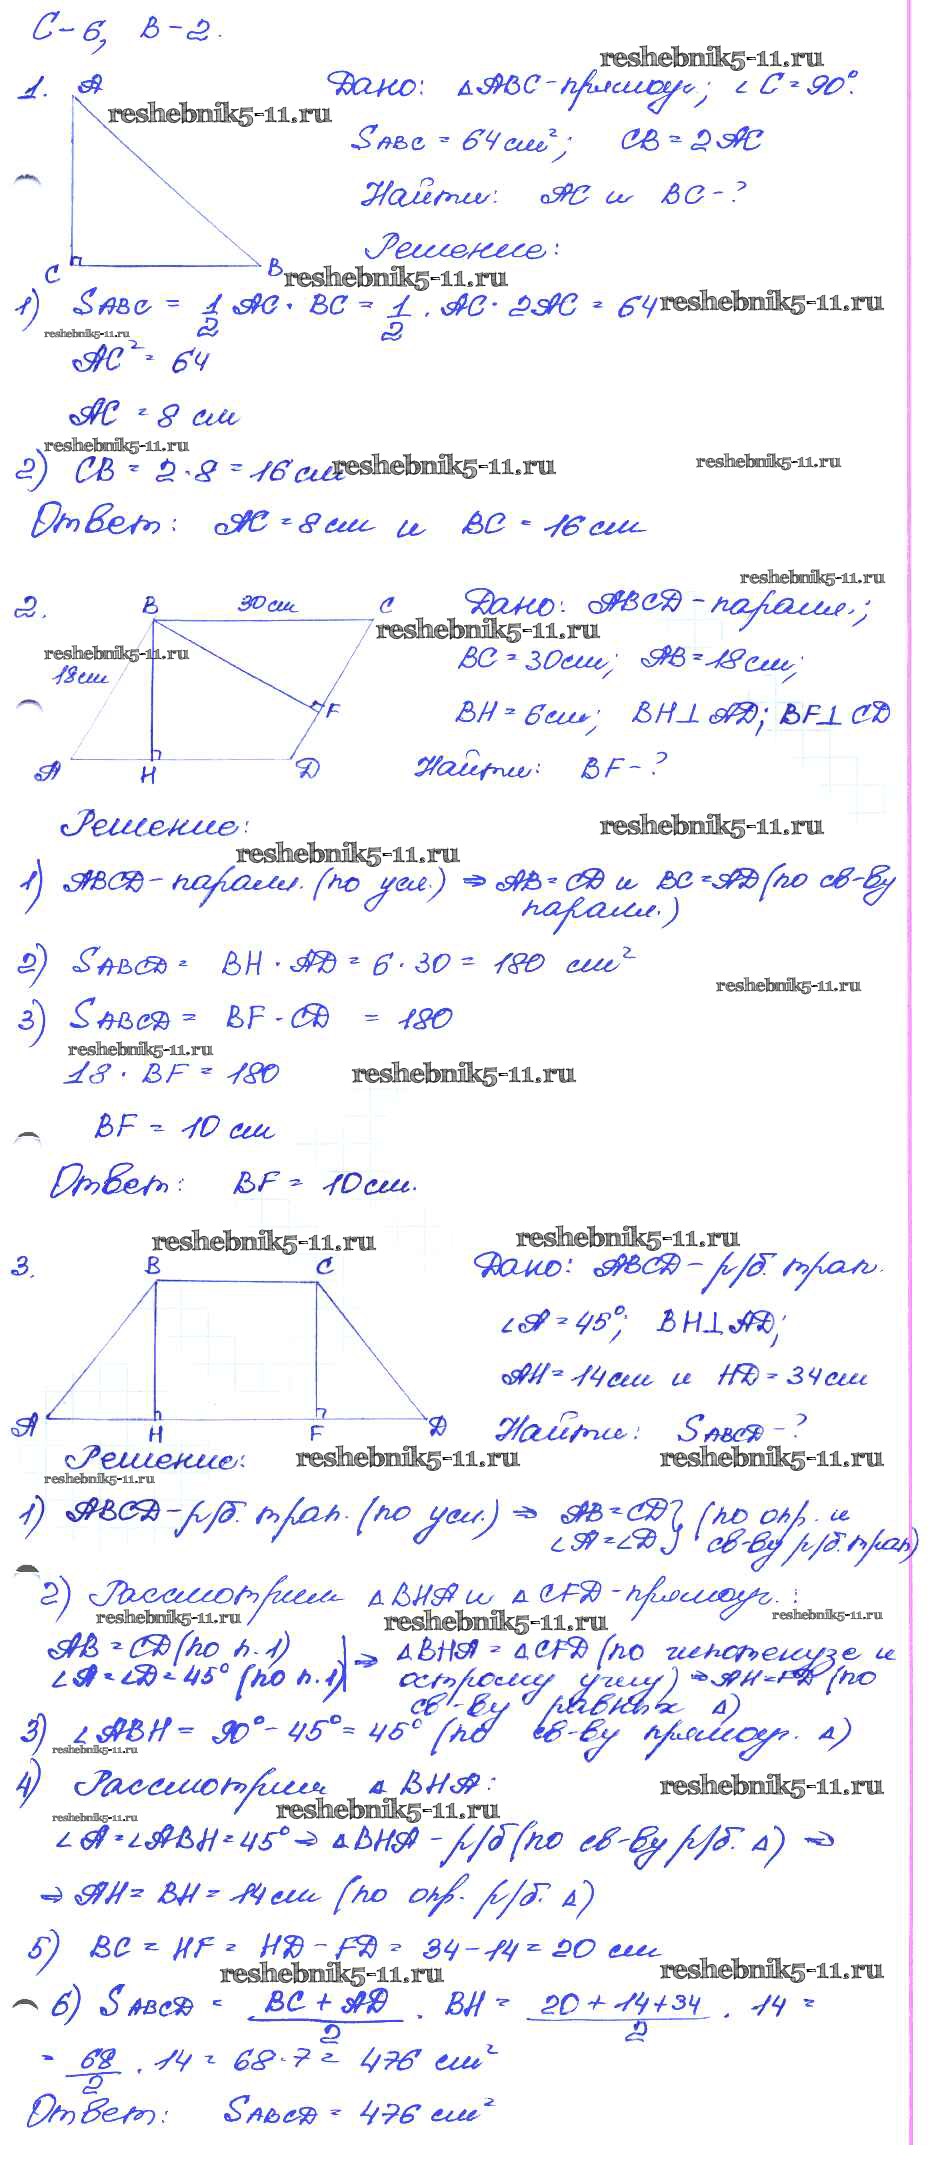 С-6, В-2.
reshebnik5-11.ru
1. A
Дано: △ABC-прямоуг; ∠C=90°.
reshebnik5-11.ru
SABC = 64см²; CB=2AC
Найти: AC и BC-?
Решение:
C B
reshebnik5-11.ru
1) SABC = 1/2 AC · BC = 1/2 · AC · 2AC = 64
reshebnik5-11.ru
reshebnik5-11.ru
AC² = 64
AC = 8 см
reshebnik5-11.ru
2) CB = 2·8 = 16 см
reshebnik5-11.ru
reshebnik5-11.ru
Ответ: AC = 8см и BC = 16см
reshebnik5-11.ru
2. B 30см C
Дано: ABCD-паралл.;
reshebnik5-11.ru
reshebnik5-11.ru
18см
BC = 30см; AB = 18см;
F
BH = 6см; BH⊥AD; BF⊥CD
A H D
Найти: BF-?
Решение:
reshebnik5-11.ru
reshebnik5-11.ru
1) ABCD-паралл. (по усл.) ⇒ AB = CD и BC = AD (по св-ву
паралл.)
2) SABCD = BH · AD = 6 · 30 = 180 см²
reshebnik5-11.ru
3) SABCD = BF · CD = 180
reshebnik5-11.ru
18 · BF = 180
reshebnik5-11.ru
BF = 10 см
Ответ: BF = 10см.
reshebnik5-11.ru
reshebnik5-11.ru
3. B C
Дано: ABCD-р/б. трап.
∠A = 45°; BH⊥AD;
AH = 14см и HD = 34см
A H F D
Найти: SABCD-?
Решение:
reshebnik5-11.ru
reshebnik5-11.ru
reshebnik5-11.ru
1) ABCD-р/б. трап. (по усл.) ⇒ AB = CD } (по опр. и
∠A = ∠D } св-ву р/б. трап)
2) Рассмотрим △BHA и △CFD-прямоуг.:
reshebnik5-11.ru
reshebnik5-11.ru
reshebnik5-11.ru
AB = CD (по п.1) | ⇒ △BHA = △CFD (по гипотенузе и
∠A = ∠D = 45° (по п.1) | острому углу) ⇒ AH = FD (по
св-ву равных △)
3) ∠ABH = 90° - 45° = 45° (по св-ву прямоуг. △)
reshebnik5-11.ru
4) Рассмотрим △BHA:
reshebnik5-11.ru
reshebnik5-11.ru
reshebnik5-11.ru
∠A = ∠ABH = 45° ⇒ △BHA - р/б (по св-ву р/б. △) ⇒
⇒ AH = BH = 14см (по опр. р/б. △)
5) BC = HF = HD - FD = 34 - 14 = 20 см
reshebnik5-11.ru
reshebnik5-11.ru
6) SABCD = BC + AD/2 · BH = 20 + 14 + 34/2 · 14 =
= 68/2 · 14 = 68 · 7 = 476 см²
Ответ: SABCD = 476 см²